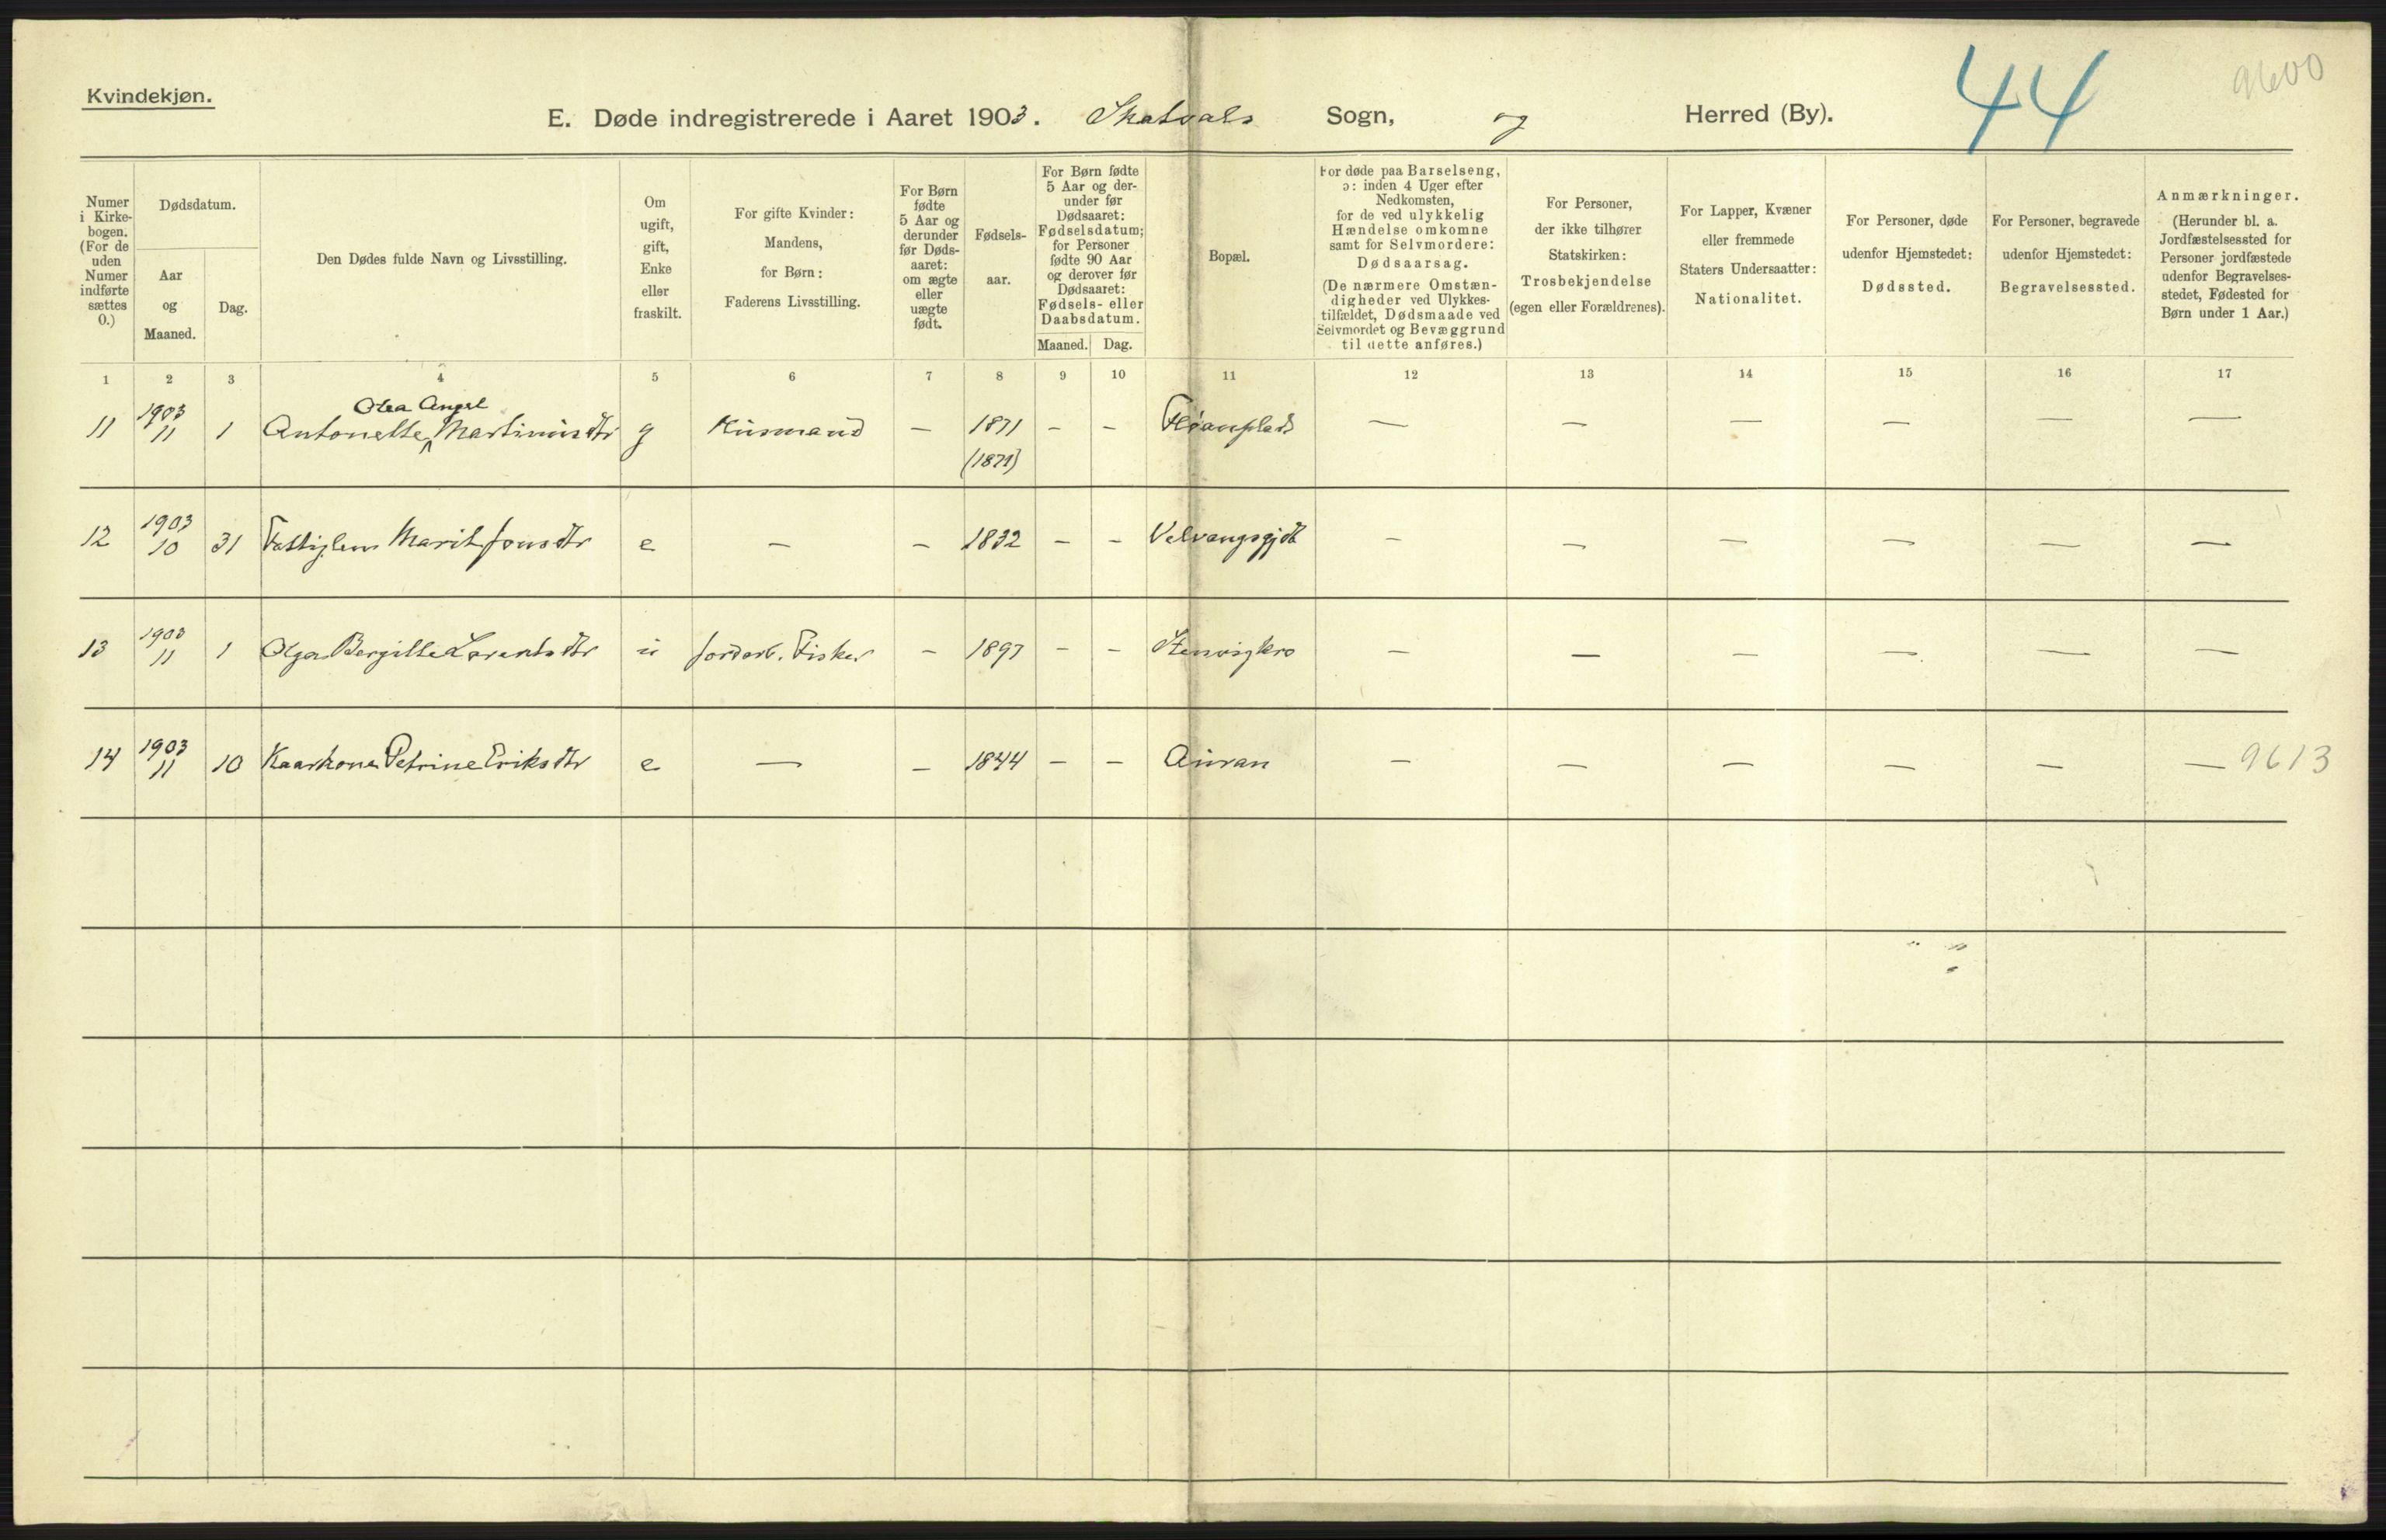 Kvindekjøn.
E. Døde indregistrerede i Aaret 1903. Skatvals Sogn, og Herred (By).
44
9600
Numer i Kirkebogen. (For de uden Numer indførte sættes 0.)
Dødsdatum.
Aar og Maaned.
Dag.
Den Dødes fulde Navn og Livsstilling.
Om ugift, gift, Enke eller fraskilt.
For gifte Kvinder: Mandens, for Børn: Faderens Livsstilling.
For Børn fødte 5 Aar og derunder før Dødsaaret: om ægte eller uægte født.
Fødselsaar.
For Børn fødte 5 Aar og derunder før Dødsaaret: Fødselsdatum; for Personer fødte 90 Aar og derover før Dødsaaret: Fødsels- eller Daabsdatum.
Maaned. Dag.
Bopæl.
For døde paa Barselseng, ɔ: inden 4 Uger efter Nedkomsten, for de ved ulykkelig Hændelse omkomne samt for Selvmordere: Dødsaarsag. (De nærmere Omstændigheder ved Ulykkestilfældet, Dødsmaade ved Selvmordet og Bevæggrund til dette anføres.)
For Personer, der ikke tilhører Statskirken: Trosbekjendelse (egen eller Forældrenes).
For Lapper, Kvæner eller fremmede Staters Undersaatter: Nationalitet.
For Personer, døde udenfor Hjemstedet: Dødssted.
For Personer, begravede udenfor Hjemstedet: Begravelsessted.
Anmærkninger. (Herunder bl. a. Jordfæstelsessted for Personer jordfæstede udenfor Begravelsesstedet, Fødested for Børn under 1 Aar.)
1 2 3 4 5 6 7 8 9 10 11 12 13 14 15 16 17
Olea Angel
11 1903 11 1 Antonette Martinusdtr g Husmand — 1871 - - — — — — — —
(1871)
12 1903 10 31 Marit Jonsdtr e — — 1832 — - Velvangsgjdt — — — — — —
13 1903 11 1 Olga Bergitte Lorentsdtr u Fisker — 1897 — — — — — — — —
14 1903 11 10 Kaarkone Petrine Eriksdtr e — — 1844 — — Auran — — — — — — 9613